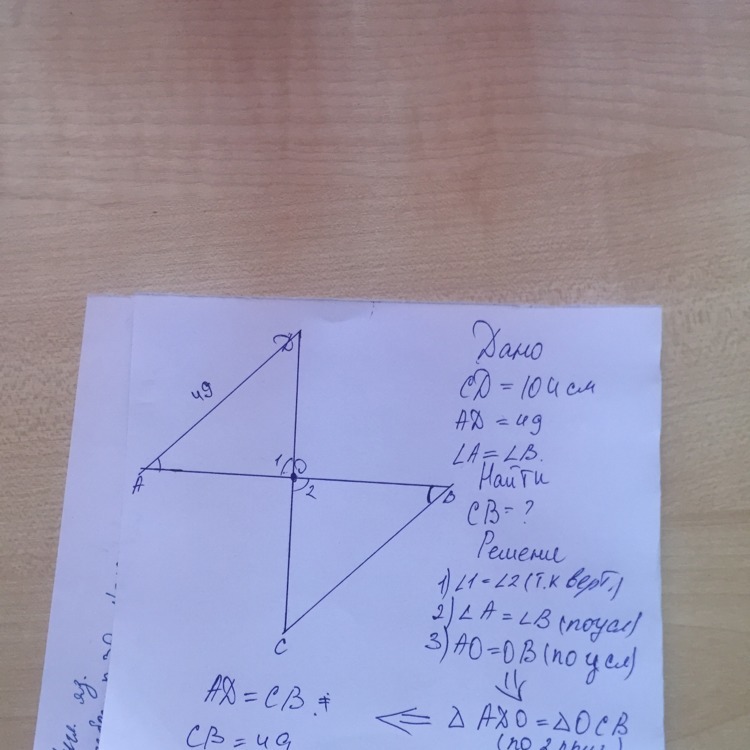 Дано
CD = 104 см
AD = 49
∠A = ∠B.
Найти
CB = ?
Решение
1) ∠1 = ∠2 (т.к верт.)
2) ∠A = ∠B (по усл)
3) AO = OB (по усл)
⇓
⇐ Δ ADO = Δ OCB
AD = CB
CB = 49
D
49
A
1
O
2
B
C